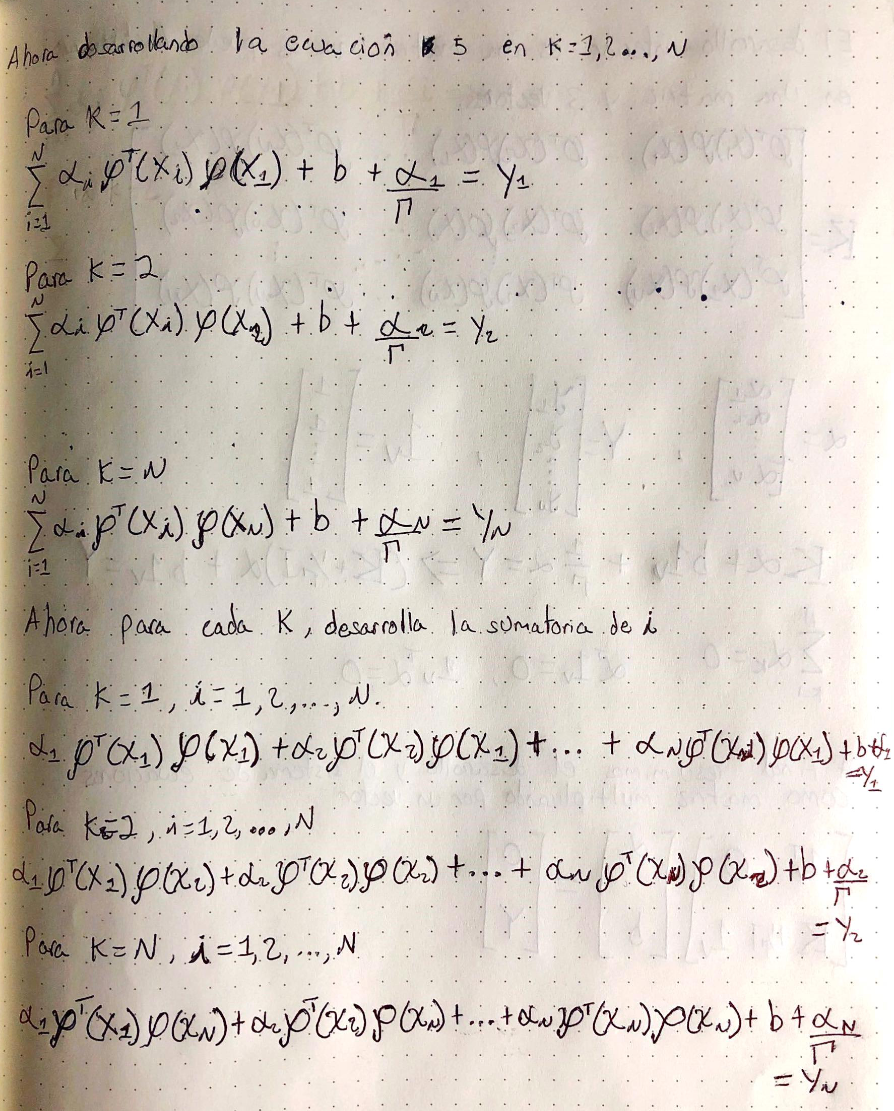 Ahora desarrollando la ecuación 5 en K=1,2...,N
Para K=1
∑_{i=1}^{N} α_i φ^T(x_i) φ(x_1) + b + α_1/Γ = y_1
Para K=2
∑_{i=1}^{N} α_i φ^T(x_i) φ(x_2) + b + α_2/Γ = y_2
Para K=N
∑_{i=1}^{N} α_i φ^T(x_i) φ(x_N) + b + α_N/Γ = y_N
Ahora para cada K, desarrolla la sumatoria de i
Para K=1, i=1,2,...,N.
α_1 φ^T(x_1) φ(x_1) + α_2 φ^T(x_2) φ(x_1) + ... + α_N φ^T(x_N) φ(x_1) + b + α_1
= y_1
Para K=2, i=1,2,...,N
α_1 φ^T(x_1) φ(x_2) + α_2 φ^T(x_2) φ(x_2) + ... + α_N φ^T(x_N) φ(x_2) + b + α_2/Γ
= y_2
Para K=N, i=1,2,...,N
α_1 φ^T(x_1) φ(x_N) + α_2 φ^T(x_2) φ(x_N) + ... + α_N φ^T(x_N) φ(x_N) + b + α_N/Γ
= y_N